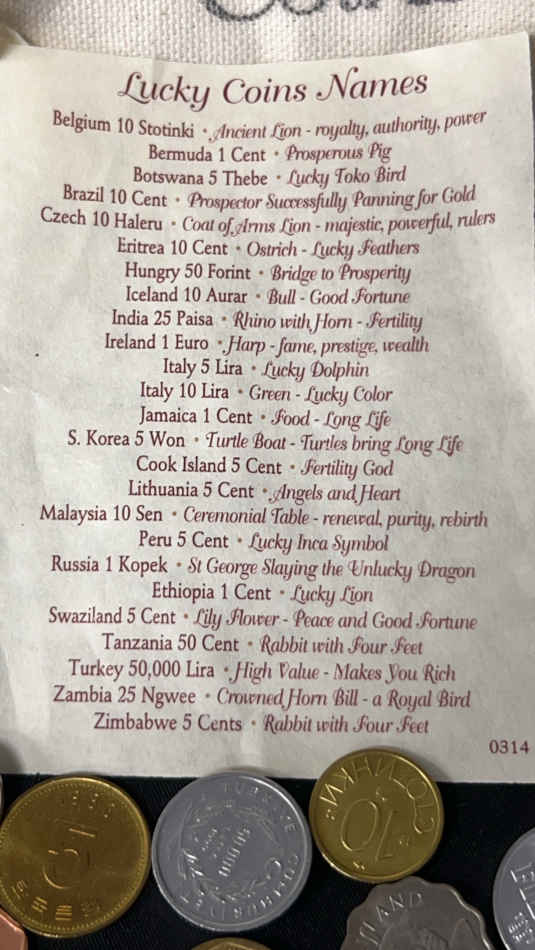 Lucky Coins Names
Belgium 10 Stotinki • Ancient Lion - royalty, authority, power
Bermuda 1 Cent • Prosperous Pig
Botswana 5 Thebe • Lucky Toko Bird
Brazil 10 Cent • Prospector Successfully Panning for Gold
Czech 10 Haleru • Coat of Arms Lion - majestic, powerful, rulers
Eritrea 10 Cent • Ostrich - Lucky Feathers
Hungry 50 Forint • Bridge to Prosperity
Iceland 10 Aurar • Bull - Good Fortune
India 25 Paisa • Rhino with Horn - Fertility
Ireland 1 Euro • Harp - fame, prestige, wealth
Italy 5 Lira • Lucky Dolphin
Italy 10 Lira • Green - Lucky Color
Jamaica 1 Cent • Food - Long Life
S. Korea 5 Won • Turtle Boat - Turtles bring Long Life
Cook Island 5 Cent • Fertility God
Lithuania 5 Cent • Angels and Heart
Malaysia 10 Sen • Ceremonial Table - renewal, purity, rebirth
Peru 5 Cent • Lucky Inca Symbol
Russia 1 Kopek • St George Slaying the Unlucky Dragon
Ethiopia 1 Cent • Lucky Lion
Swaziland 5 Cent • Lily Flower - Peace and Good Fortune
Tanzania 50 Cent • Rabbit with Four Feet
Turkey 50,000 Lira • High Value - Makes You Rich
Zambia 25 Ngwee • Crowned Horn Bill - a Royal Bird
Zimbabwe 5 Cents • Rabbit with Four Feet
0314
СТОТИНКИ
10